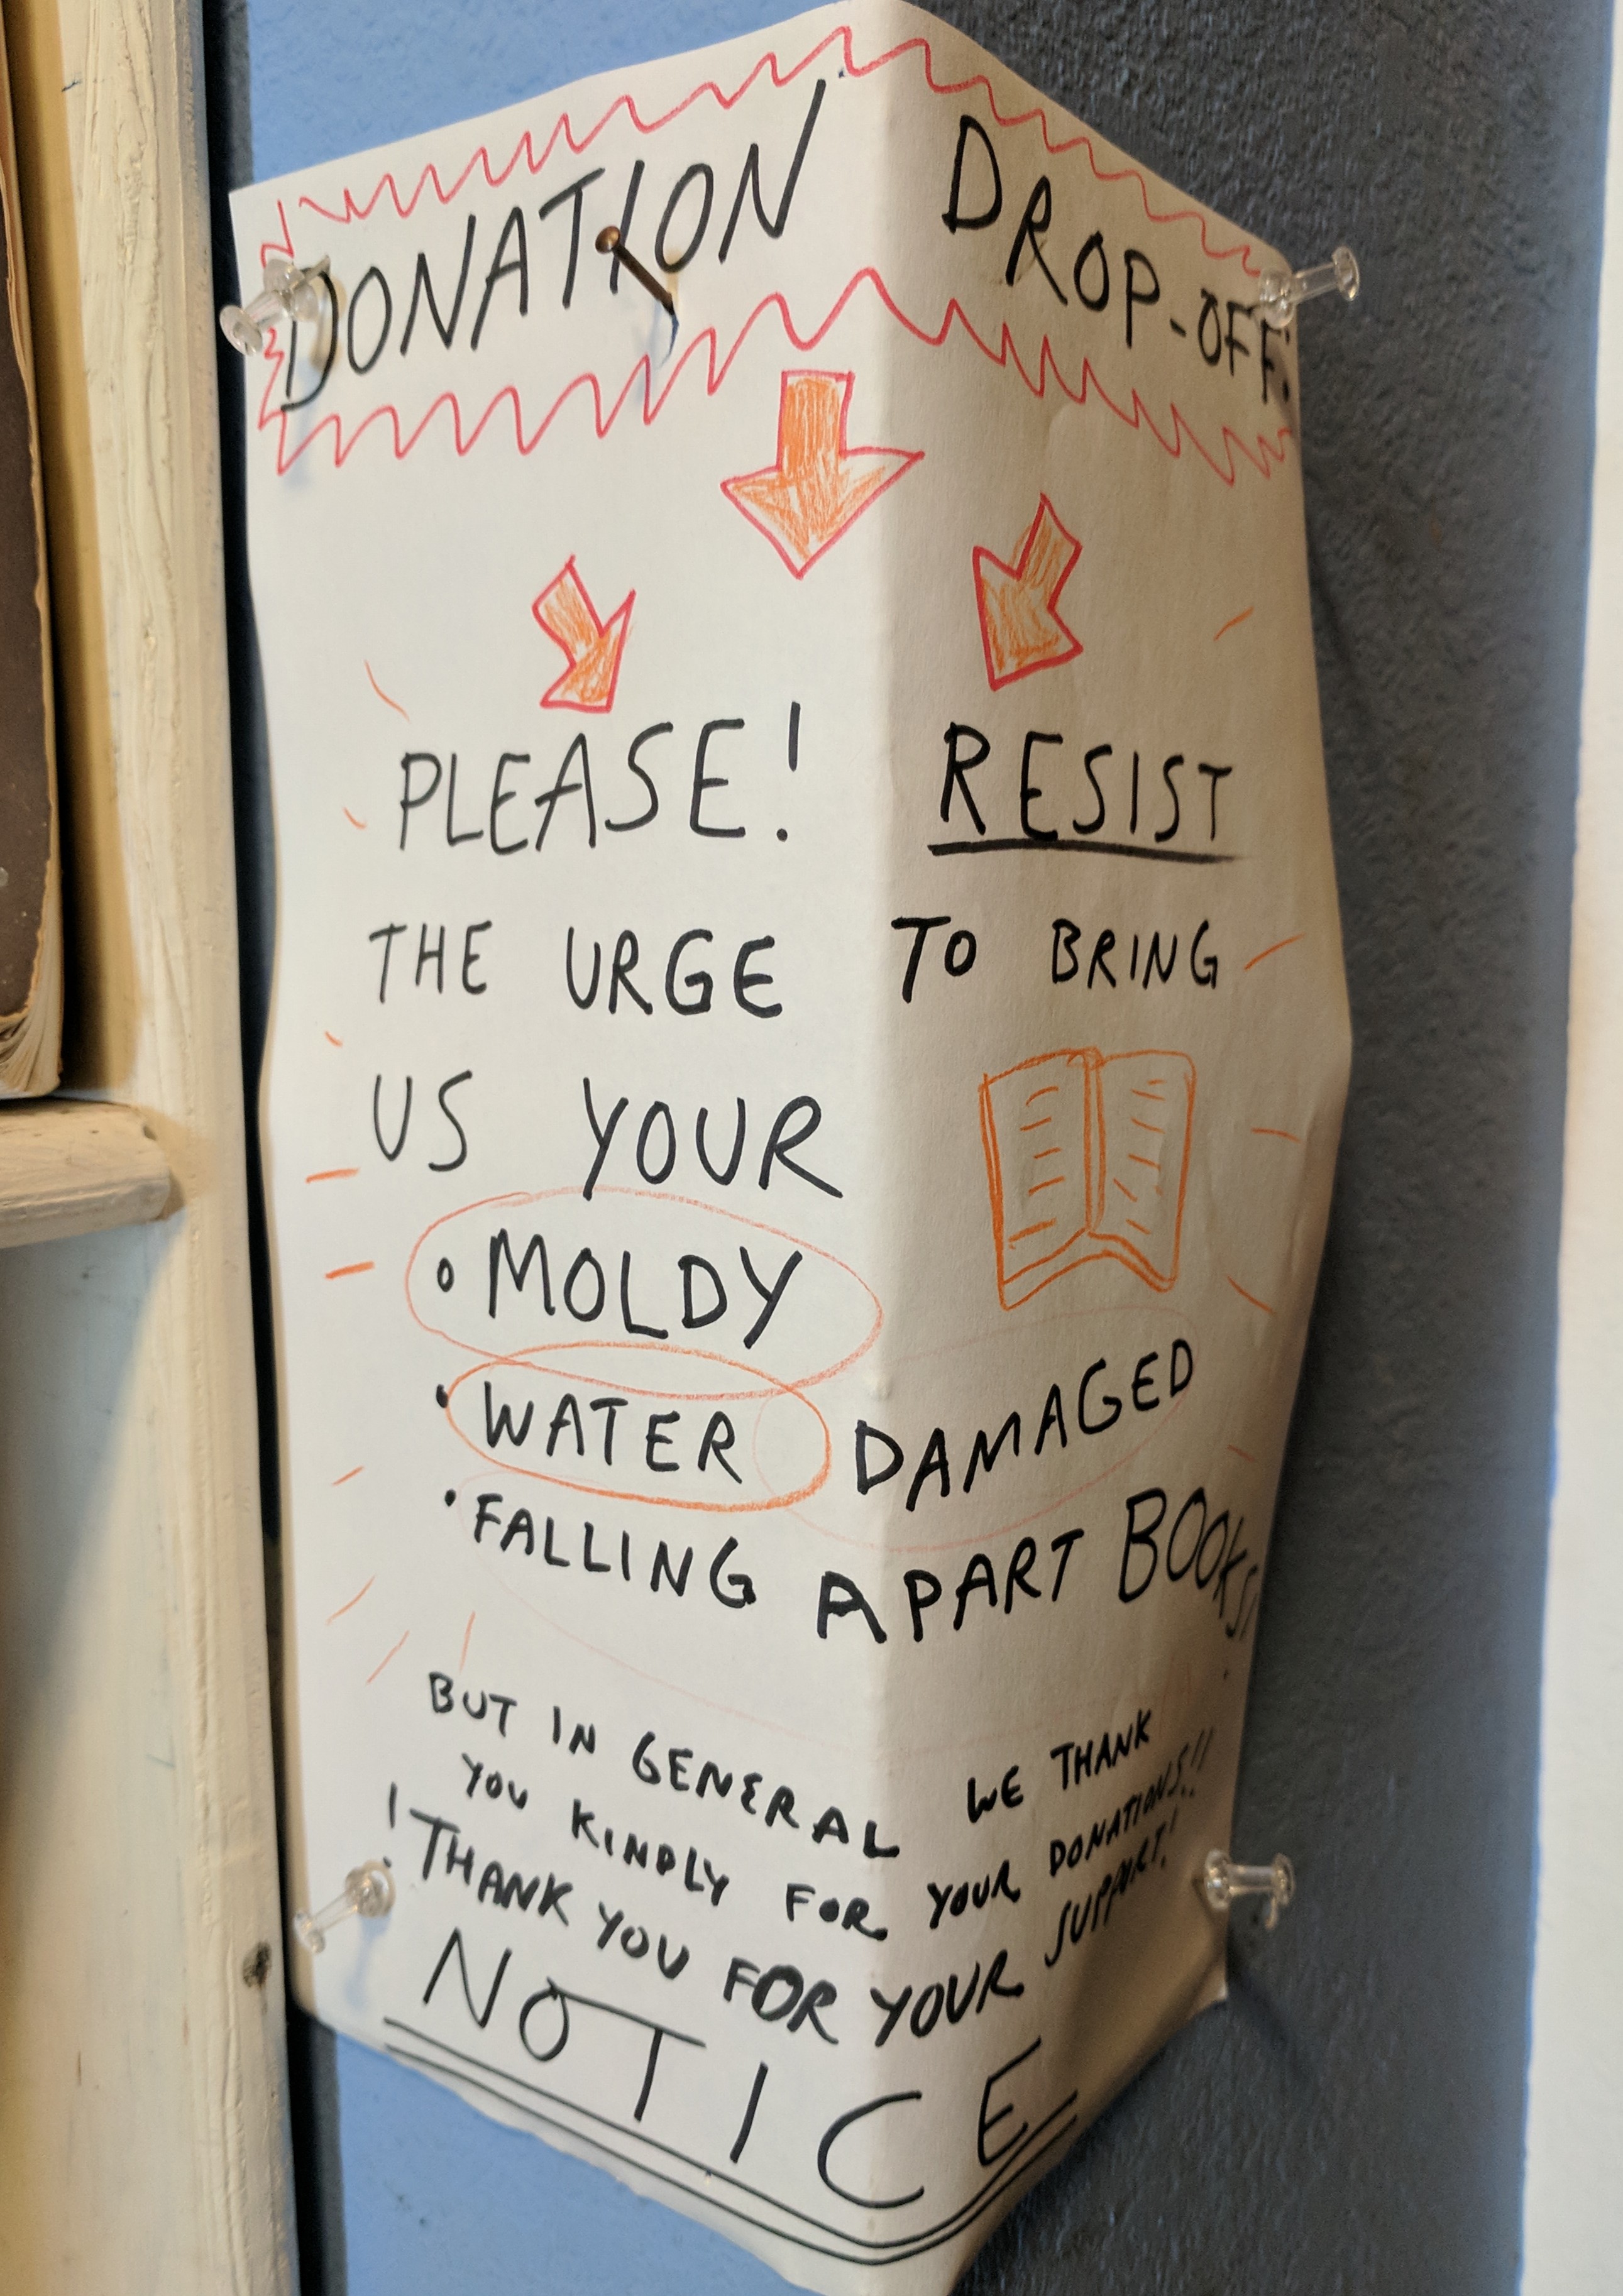 DONATION DROP-OFF:
PLEASE! RESIST
THE URGE TO BRING
US YOUR
• MOLDY
• WATER DAMAGED
• FALLING APART BOOKS!
BUT IN GENERAL WE THANK
YOU KINDLY FOR YOUR DONATIONS!!
! THANK YOU FOR YOUR SUPPORT!
NOTICE